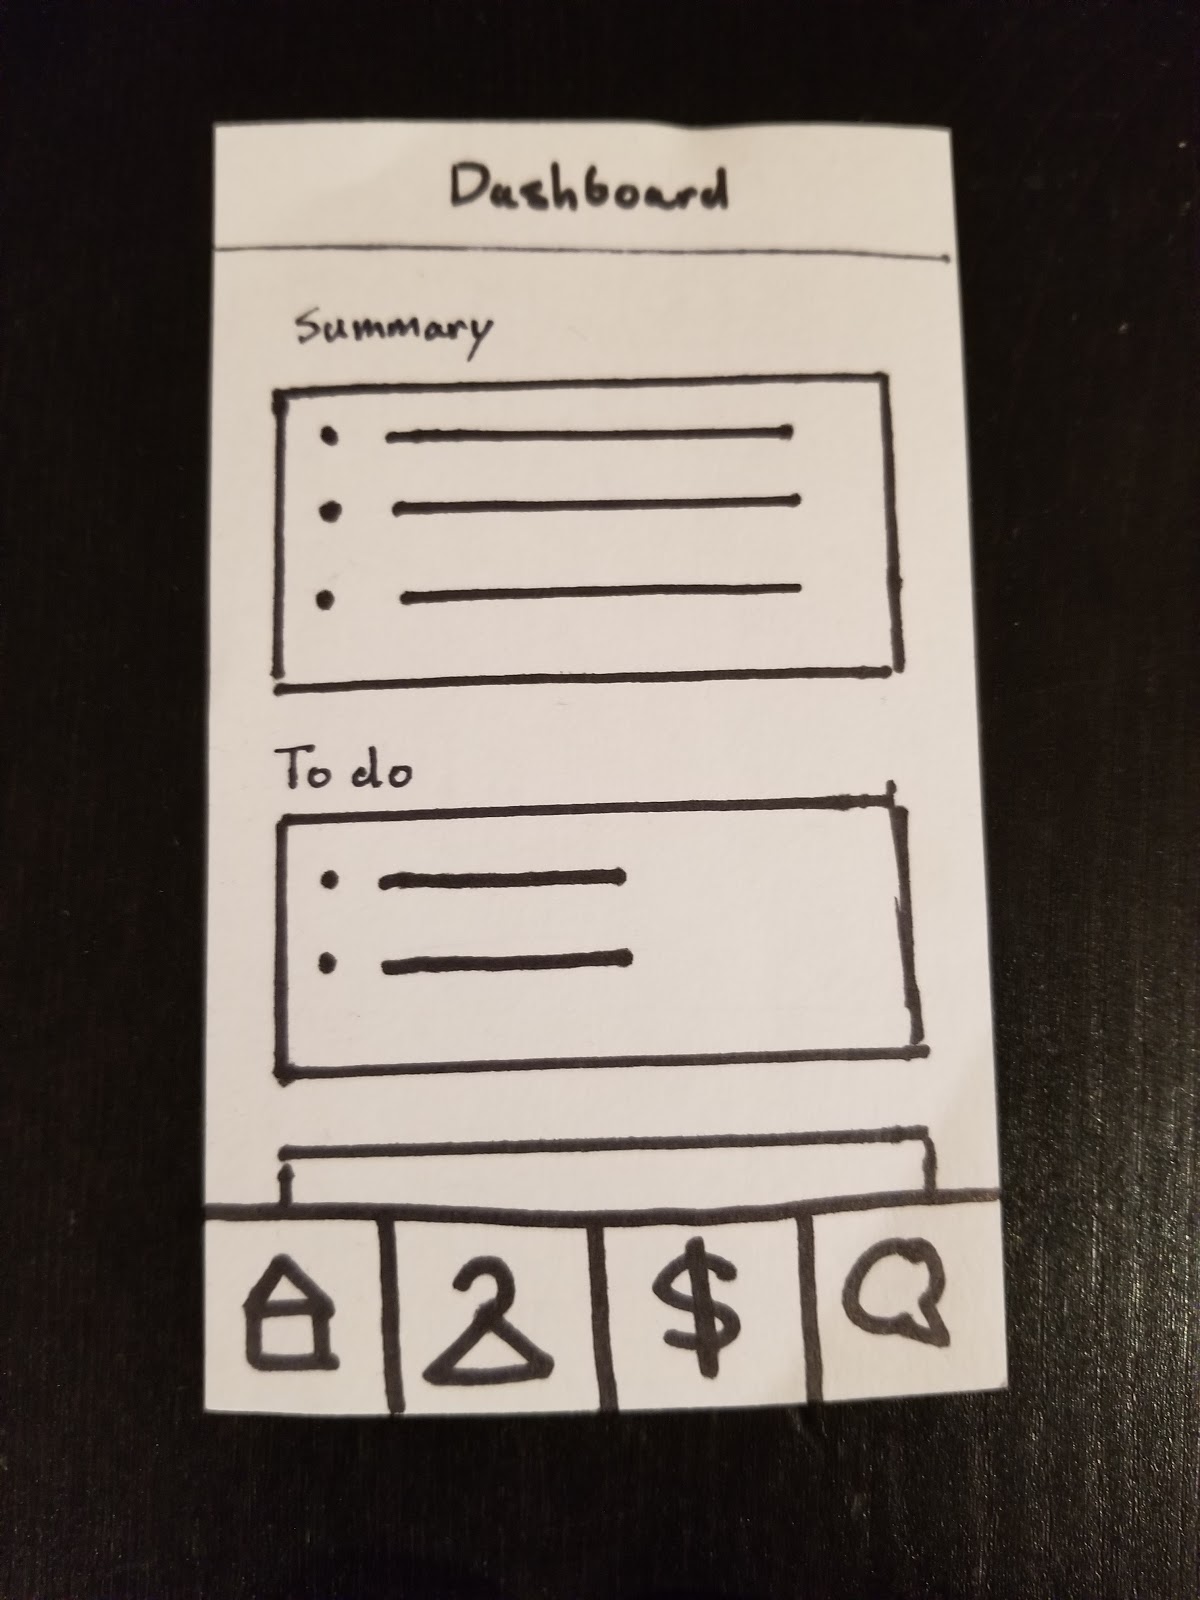 Dashboard
Summary
To do
$